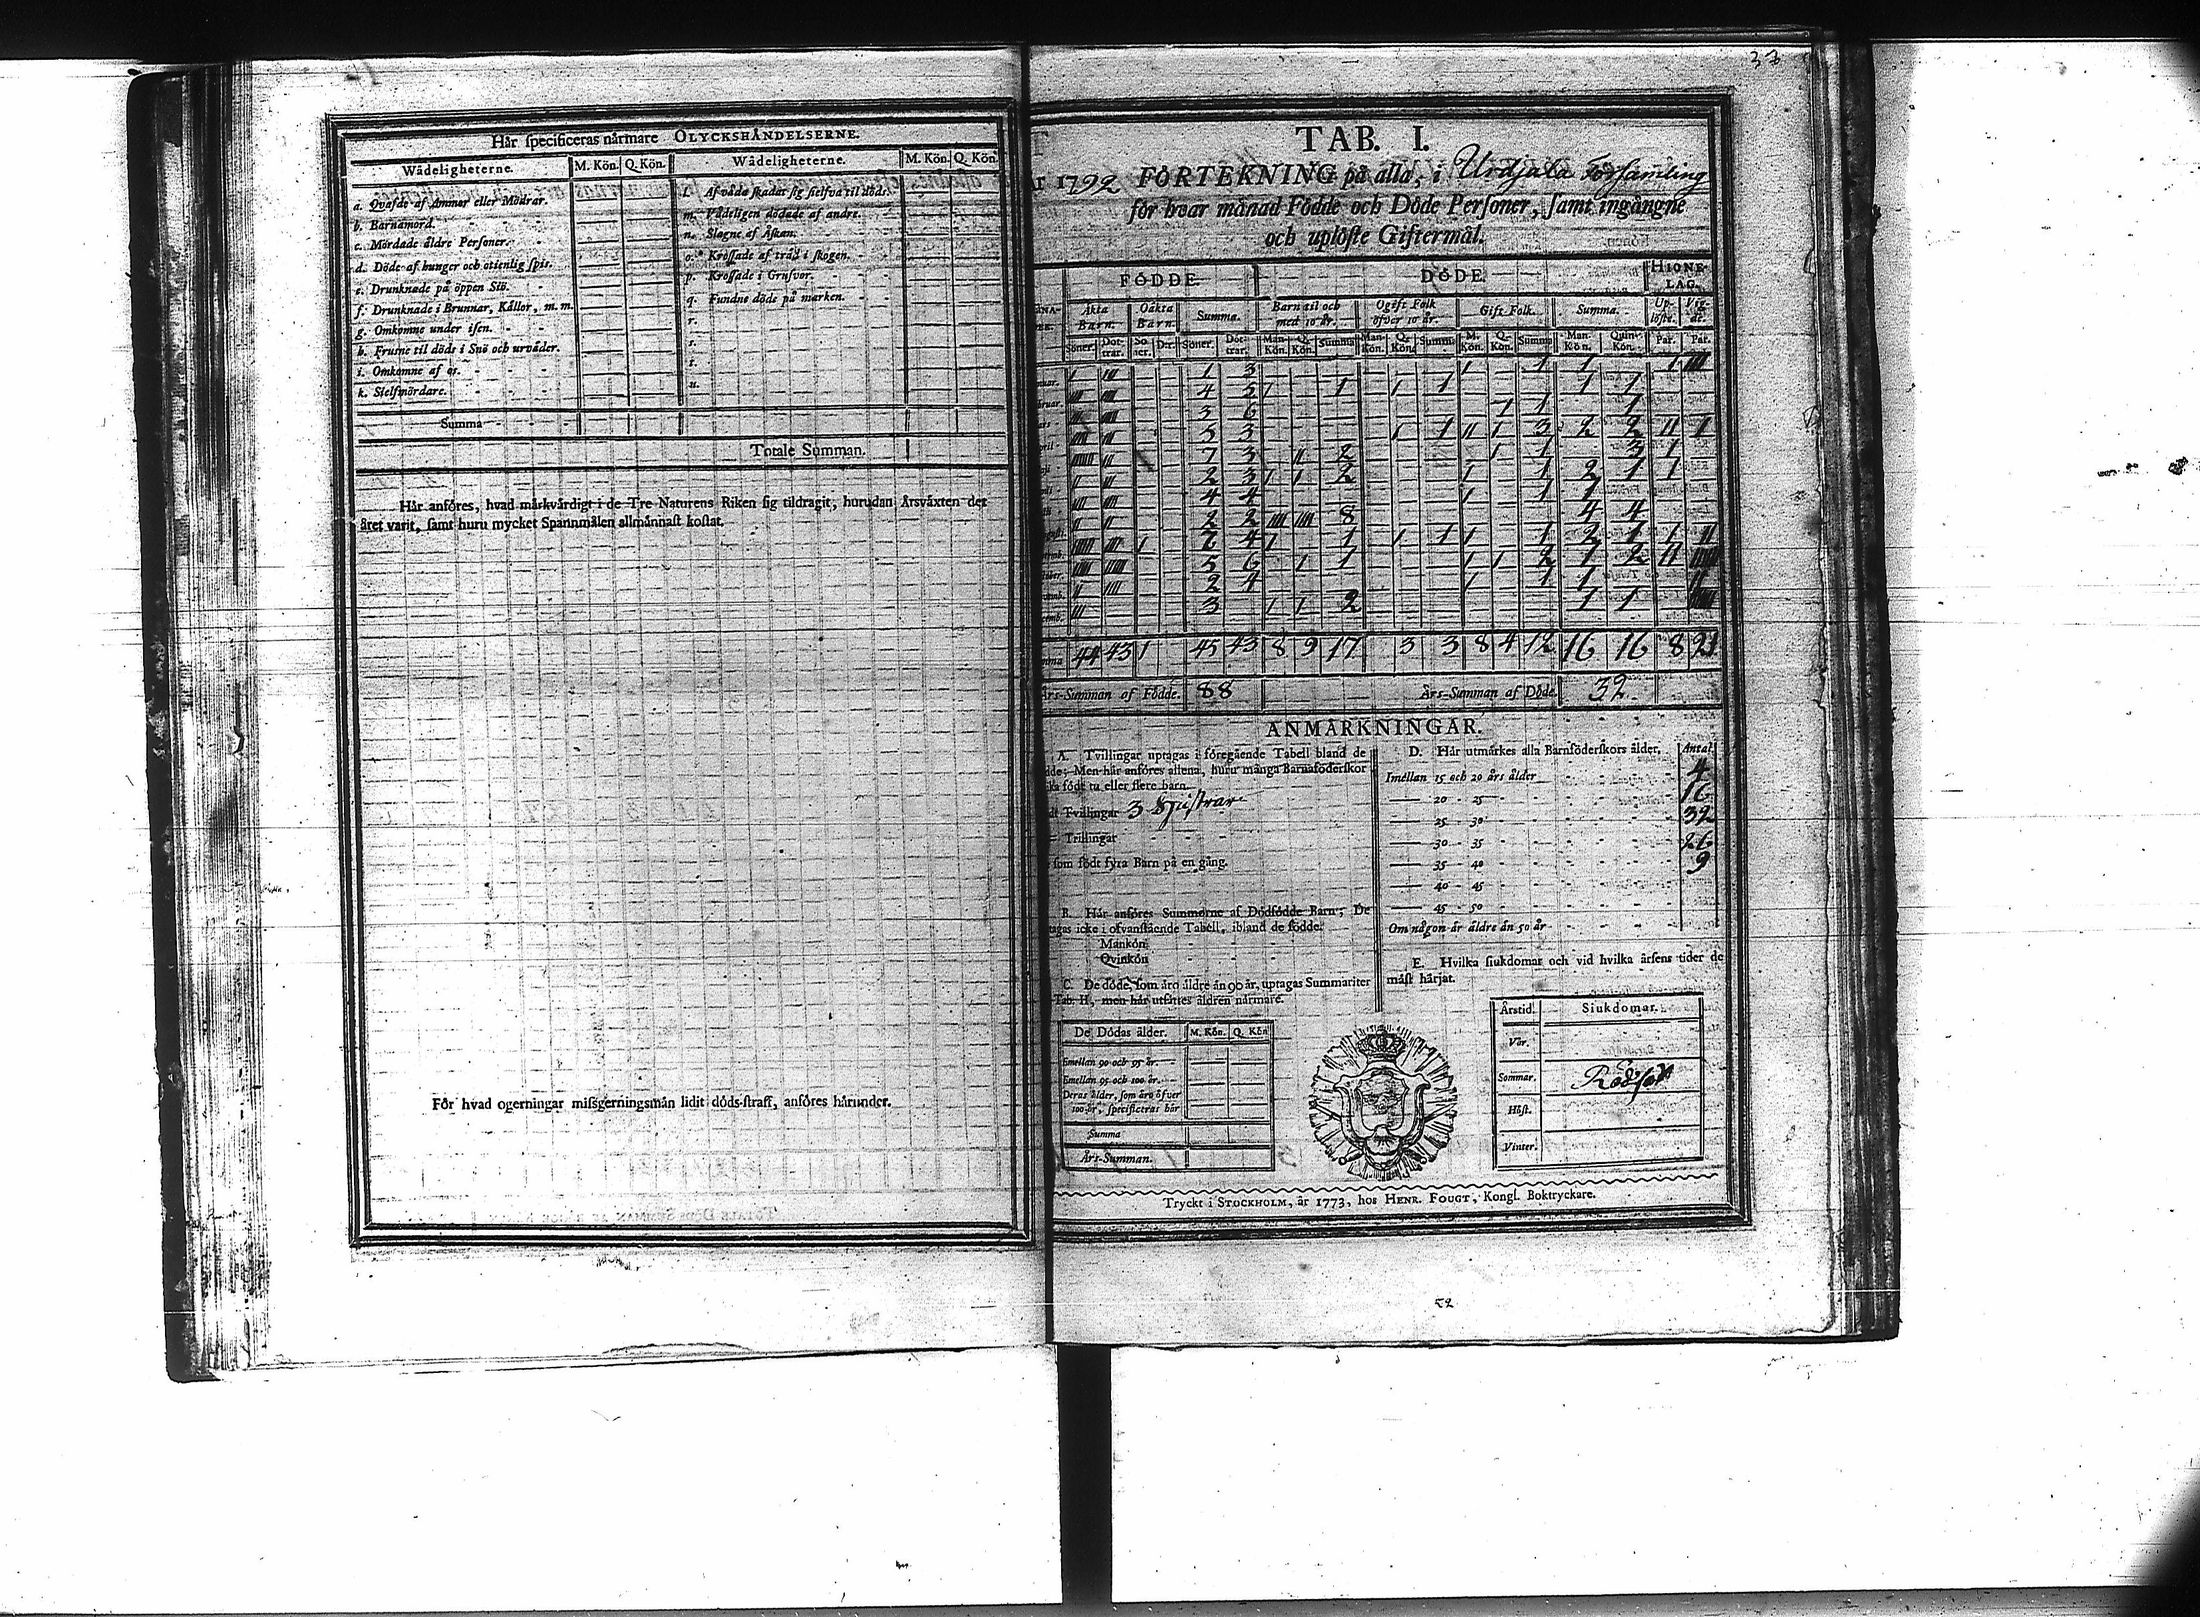 37
Hår specificeras nårmare OLYCKSHÅNDELSERNE.
Wådeligheterne. M. Kön. Q. Kön. Wådeligheterne. M. Kön. Q. Kön.
a. Qvafde af Ammor eller Mödrar.
b. Barnamord.
c. Mördade åldre Personer.
d. Döde af hunger och otienlig spis.
e. Drunknade på öppen Siö.
f. Drunknade i Brunnar, Kållor, m. m.
g. Omkomne under isen.
h. Frusne til döds i Snö och urvåder.
i. Omkomne af os.
k. Sielfmördare.
l. Af våda skadat sig sielfva til döds.
m. Vådeligen dödade af andre.
n. Slagne af Åskan.
o. Krossade af tråd i skogen.
p. Krossade i Grufvor.
q. Fundne döde på marken.
r.
s.
t.
u.
Summa
Totale Summan.
Hår anföres, hvad mårkvårdigt i de Tre Naturens Riken sig tildragit, hurudan Årsvåxten det
året varit, samt huru mycket Spannmålen allmånnast kostat.
För hvad ogerningar missgerningsmån lidit döds-straff, anföres hårunder.
TAB. I.
År 1792 FÖRTEKNING på alla, i Urdjala Församling
för hvar månad Födde och Döde Personer, samt ingångne
och uplöste Giftermål.
FÖDDE. DÖDE. HIONE-LAG.
Åkta Barn. Oåkta Barn. Summa. Barn til och med 10 år. Ogift Folk öfver 10 år. Gift Folk. Summa. Up-löste. Vig-de.
Söner. Döt-trar. So ner. Dtr. Söner. Döt-trar. Man-Kön. Q. Kön. Summa Man-Kön. Q. Kön. Summa M. Kön. Q. Kön. Summa Man-Kön. Quin-Kön. Par. Par.
1 3 1 1 1
4 5 1 1 1 1 1 1
3 6 1 1 1
5 3 1 1 11 1 3 2 2 11 1
7 3 11 2 1 1 3 1
2 3 1 1 2 1 1 2 1 1
4 4 1 1 1
2 2 1111 1111 8 4 4
7 4 1 1 1 1 1 1 2 1 1 11
5 6 1 1 1 1 2 1 2 11
2 4 1 1 1
3 1 1 2 1 1
44 43 1 45 43 8 9 17 3 3 8 4 12 16 16 8 21
Års-Summan af Födde. 88 Års-Summan af Döde. 32.
ANMÅRKNINGAR.
A. Tvillingar uptagas i föregående Tabell bland de
dde; Men hår anföres allena, huru många Barnaföderskor
ka född tu eller flere barn.
dt Tvillingar 3 Hustrur
Trillingar
som född fyra Barn på en gång.
B. Hår anföres Summorne af Dödfödde Barn; De
tagas icke i ofvanstående Tabell, ibland de födde.
Mankön
Qvinkön
C. De döde, som åro åldre ån 90 år, uptagas Summariter
Tab. II, men hår utföres åldren nårmare.
De Dödas ålder. M. Kön. Q. Kön
Emellan 90 och 95 år.
Emellan 95 och 100 år.
Deras ålder, som åro öfver
100 år, specificeras hår
Summa
Års-Summan.
D. Hår utmårkes alla Barnföderskors ålder. Antal
Imellan 15 och 20 års ålder 4
20 - 25 16
25 - 30 32
30 - 35 26
35 - 40 9
40 - 45
45 - 50
Om någon år åldre ån 50 år
E. Hvilka siukdomar och vid hvilka årsens tider de
måst hårjat.
Årstid. Siukdomar.
Vår.
Sommar. Rödsot
Höst.
Vinter.
Tryckt i STOCKHOLM, år 1773, hos HENR. FOUGT, Kongl. Boktryckare.
52